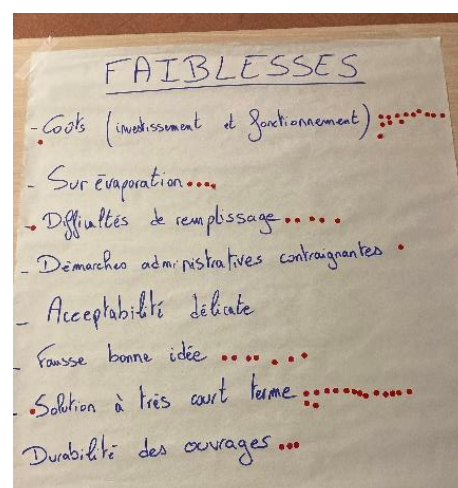 FAIBLESSES
- Coûts (investissement et fonctionnement)
- Sur évaporation
- Difficultés de remplissage
- Démarches administratives contraignantes
- Acceptabilité délicate
- Fausse bonne idée
- Solution à très court terme
Durabilité des ouvrages